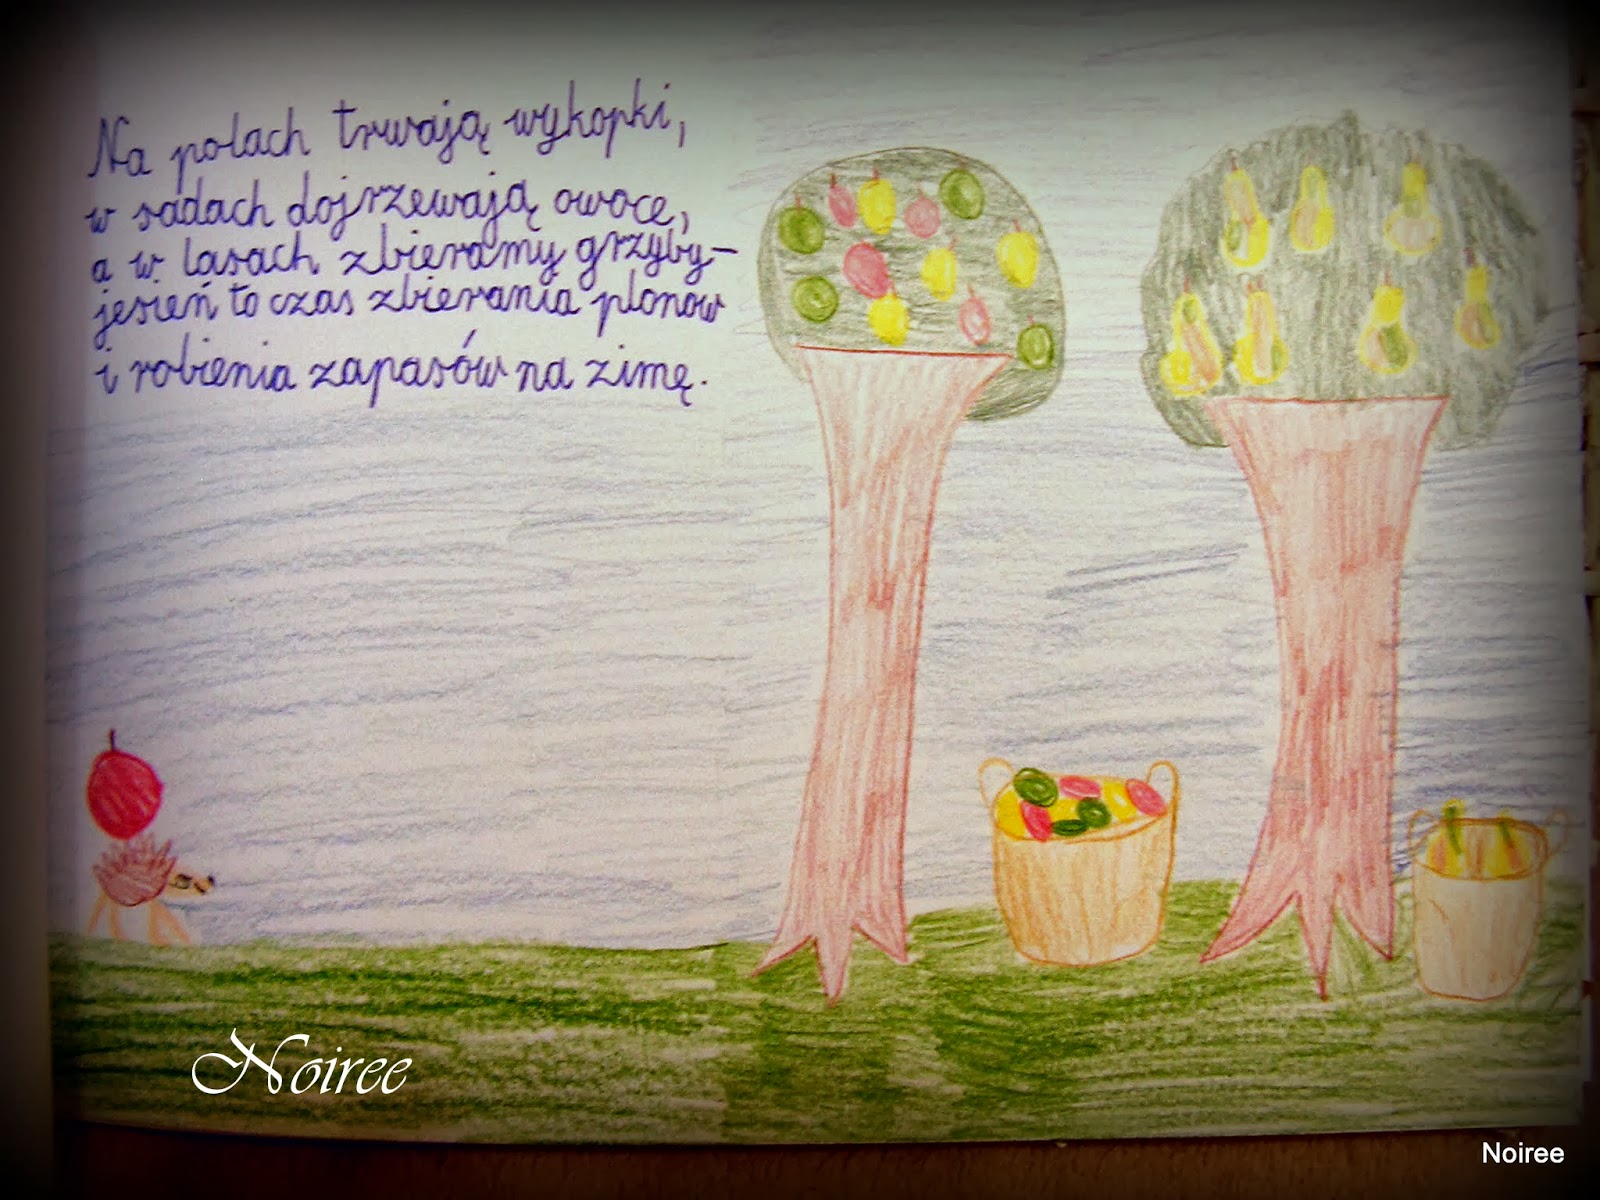 Na polach trwają wykopki,
w sadach dojrzewają owoce,
a w lasach zbieramy grzyby-
jesień to czas zbierania plonów
i robienia zapasów na zimę.
Noiree
Noiree